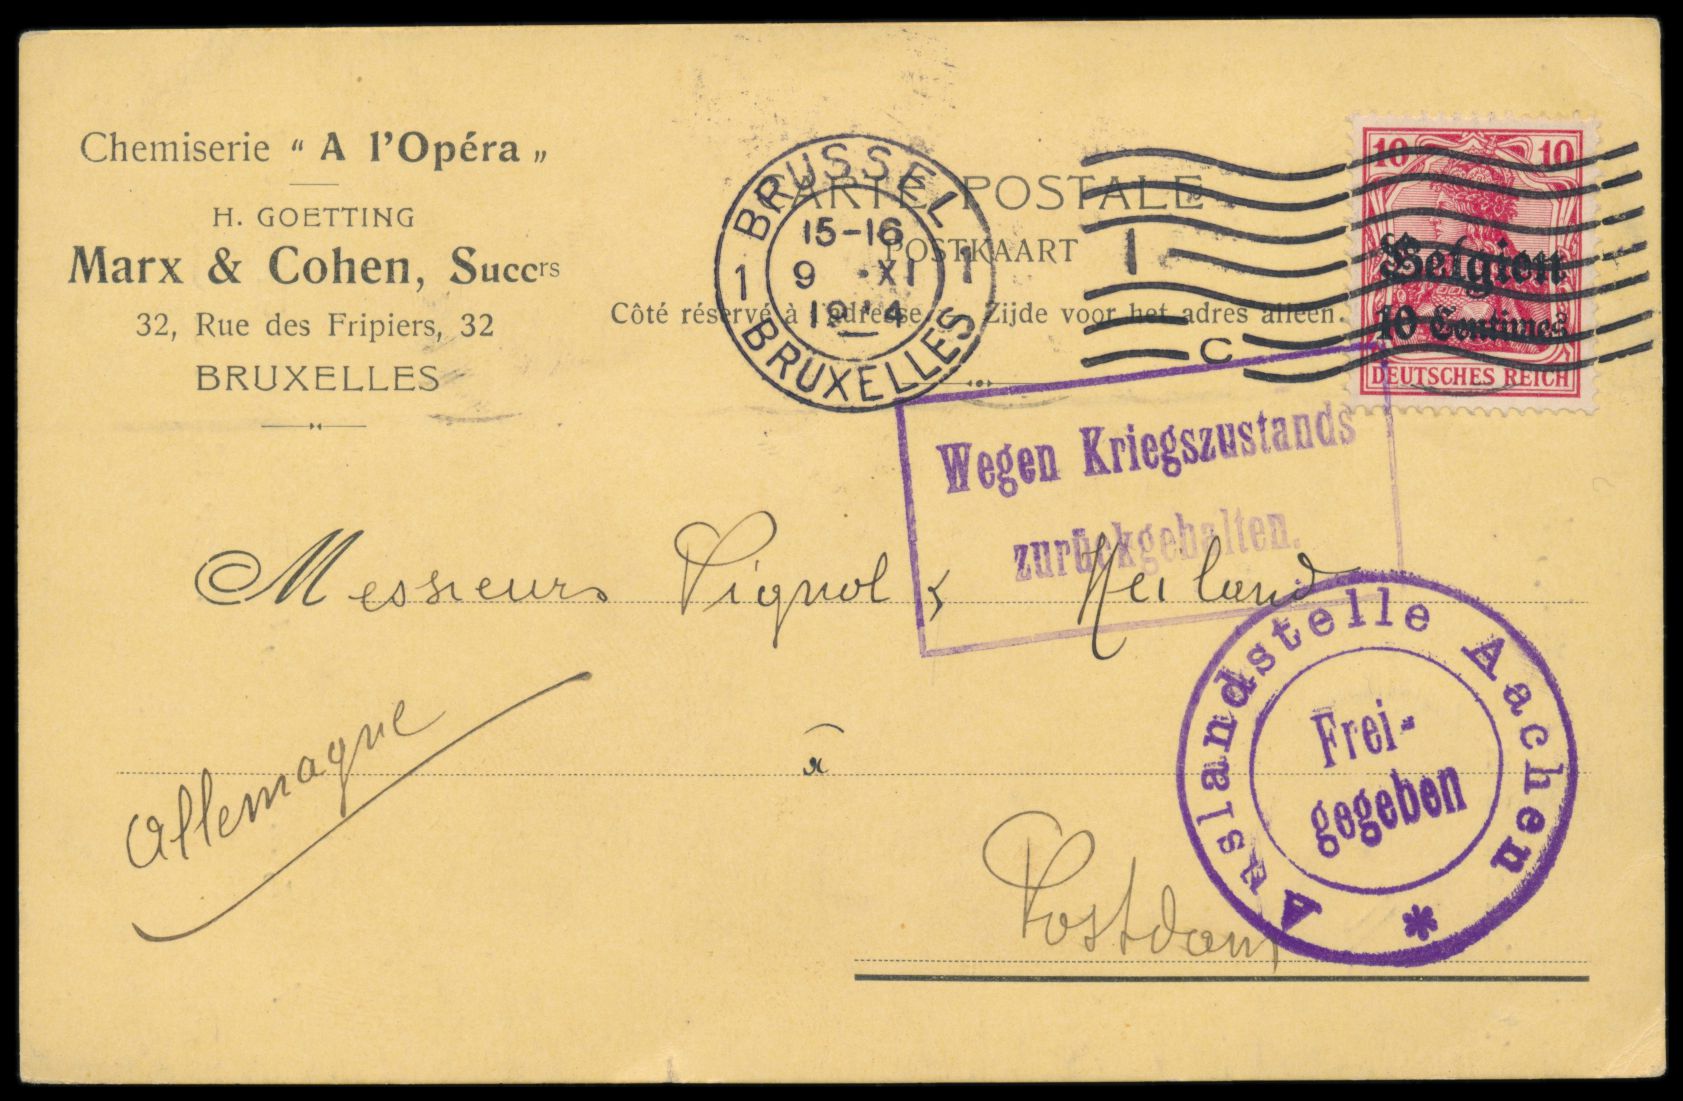 Chemiserie “ A l'Opéra „
H. GOETTING
Marx & Cohen, Succrs
32, Rue des Fripiers, 32
BRUXELLES
CARTE POSTALE
POSTKAART
Côté réservé à l'adresse. Zijde voor het adres alleen.
1 BRUSSEL 1
15-16
9 ·XI
1914
BRUXELLES
1
C
10 10
Belgien
10 Centimes
DEUTSCHES REICH
Wegen Kriegszustands
zurückgehalten.
Messieurs Vignol & Heiland
à
Postdam
Allemagne
Auslandstelle Aachen *
Frei-
gegeben